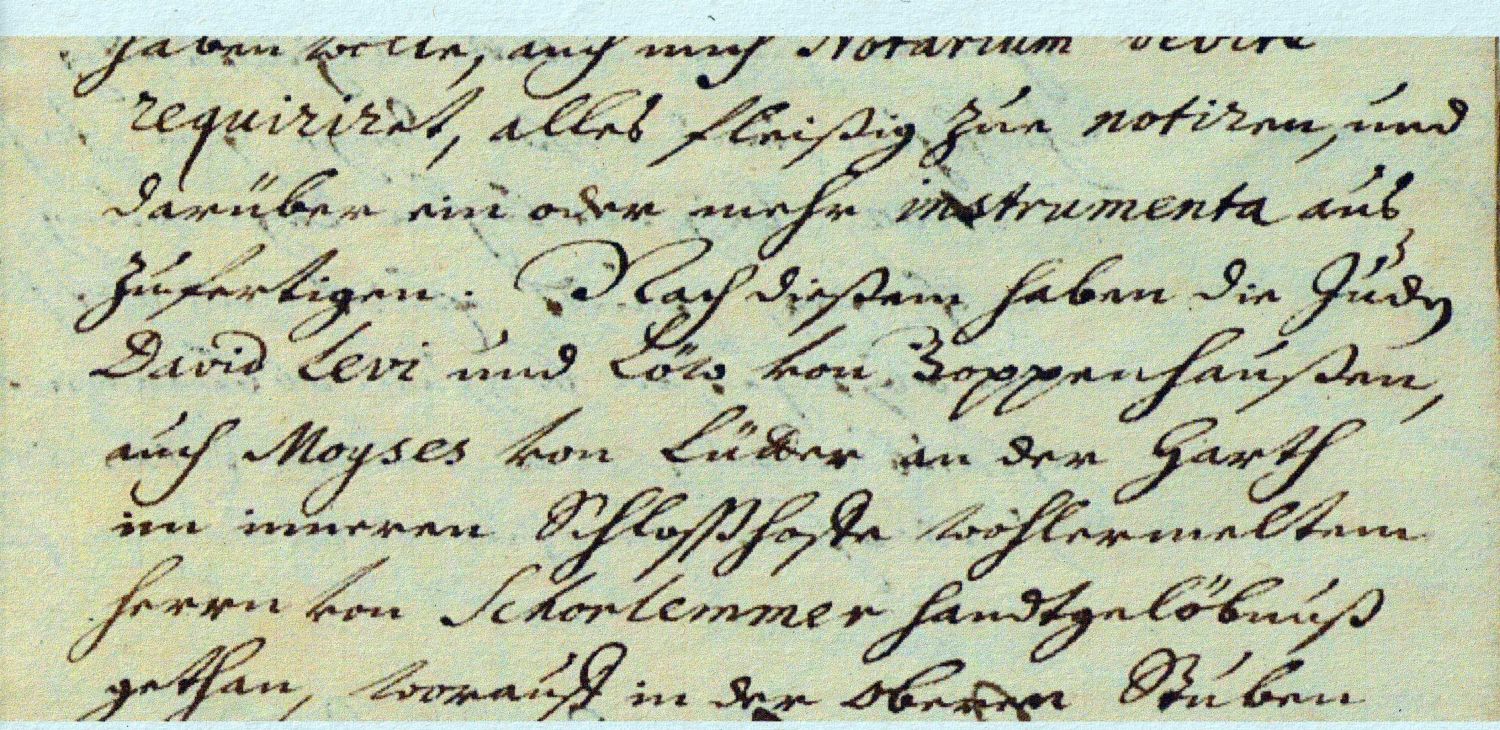 haben wolle, auch mich Notarium debite
requiriret, alles fleißig zue notiren, und
darüber ein oder mehr instrumenta aus
zufertigen. Nach dießem haben die Juden
David Levi und Löw von Poppenhaußen,
auch Moyses von Lütter an der Harth
im inneren Schloßhoffe wohlermeltem
Herrn von Schorlemmer handtgelöbnuß
gethan, worauff in der oberen Stuben